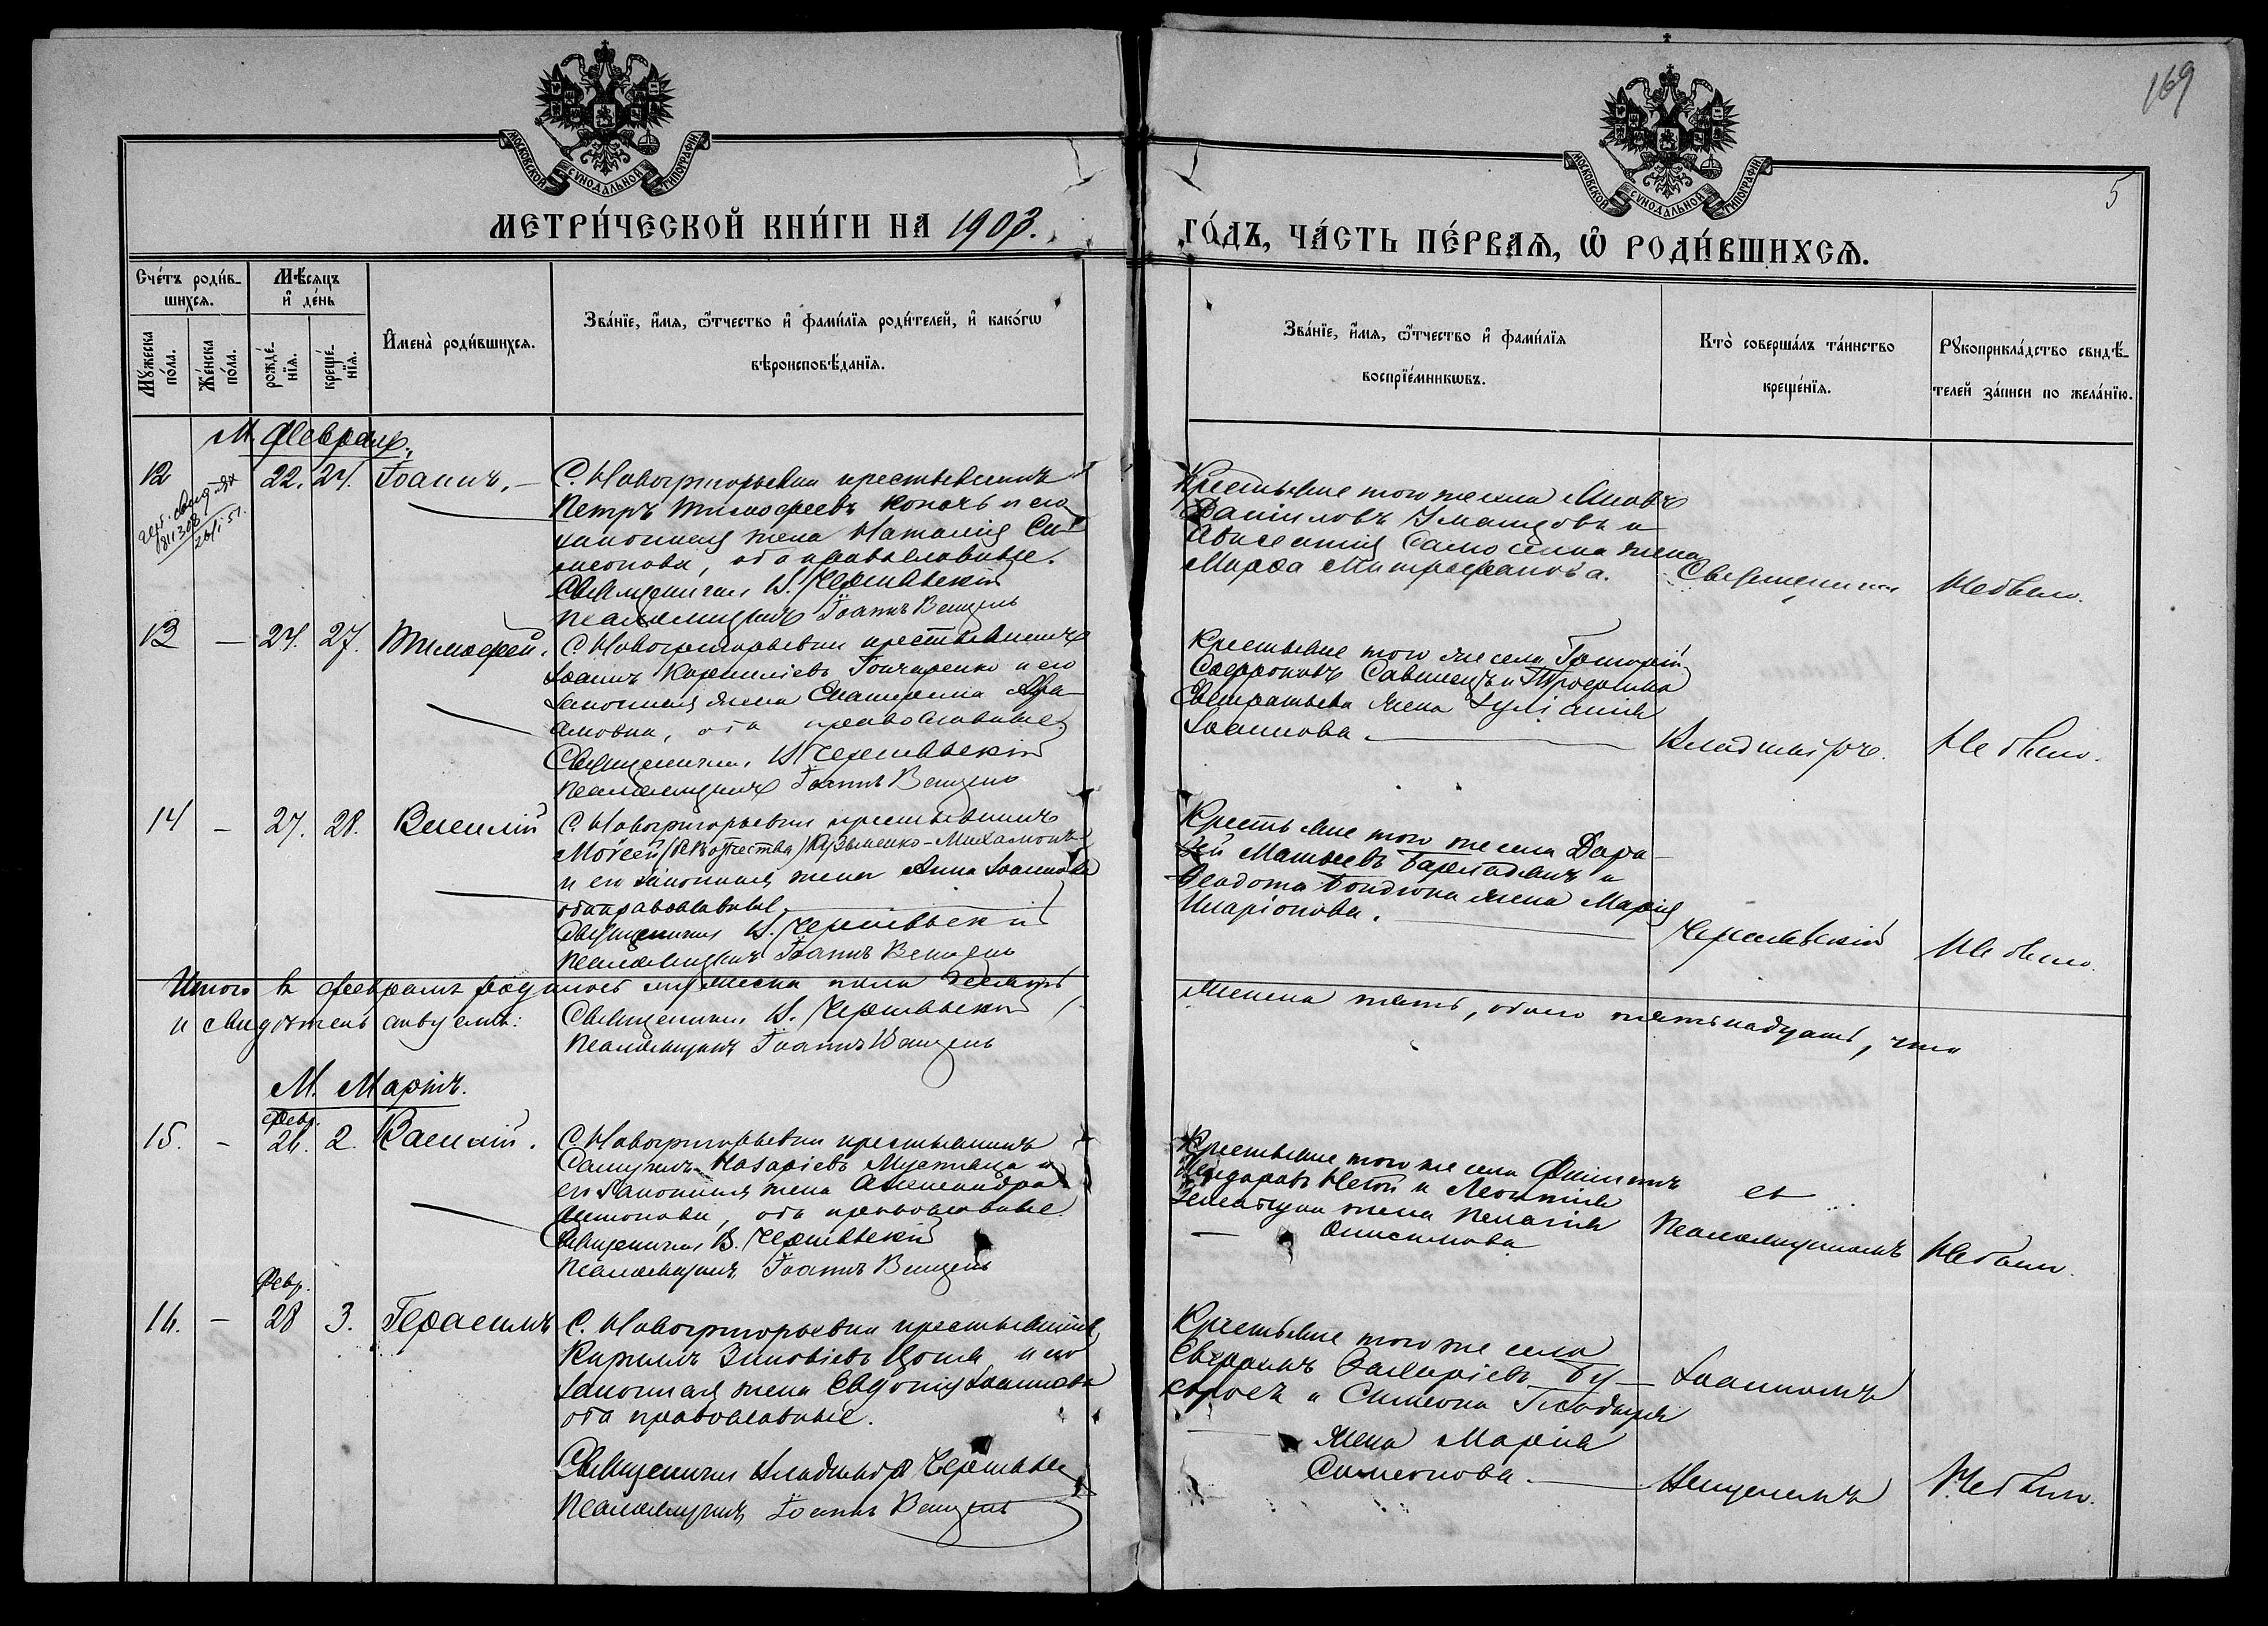 169
5
МОСКОВСКОЙ СѴНОДАЛЬНОЙ ТИПОГРАФІИ
МОСКОВСКОЙ СѴНОДАЛЬНОЙ ТИПОГРАФІИ
МЕТРИ́ЧЕСКОЙ КНИ́ГИ НА 1903.
ГО́ДЪ, ЧА́СТЬ ПЕ́РВАѦ, Ѡ҆ РОДИ́ВШИХСѦ.
Сче́тъ роди́в-
шихсѧ.
Мѣ́сѧцъ
и҆ де́нь
Мꙋ́жеска
по́ла.
Же́нска
по́ла.
рожде́-
нїѧ.
креще́-
нїѧ.
И҆мена̀ роди́вшихсѧ.
Зва́нїе, и҆́мѧ, ѻ҆́тчество и҆ фами́лїѧ роди́телей, и҆ како́гѡ
вѣроисповѣ́данїѧ.
Зва́нїе, и҆́мѧ, ѻ҆́тчество и҆ фами́лїѧ
воспрїе́мникѡвъ.
Кто̀ соверша́лъ та́инство
креще́нїѧ.
Рꙋкоприкла́дство свидѣ́-
телей за́писи по жела́нїю.
М. Февраль.
12 22. 24. Іоаннъ. – С. Новогригорьевки крестьянинъ
Петръ Тимофеевъ Копачъ и его
законная жена Наталія Си-
меонова, оба православные.
Священникъ В. Чернявскій
Псаломщикъ Іоаннъ Венцель
Крестьяне того же села
Даніиловъ и
Самойленка жена
Марѳа Митрофанова.
Священникъ
Не было.
13 – 24. 27. Тимофей. С. Новогригорьевки крестьянинъ
Іоаннъ Корниліевъ Гончаренко и его
законная жена Екатерина Авра-
амова, оба православные
Священникъ В. Чернявскій
Псаломщикъ Іоаннъ Венцель
Крестьяне того же села Григорій
Софроновъ Савинецъ и Трофима
жена Іуліанія
Іоаннова.
Владиміръ.
Не было.
14 – 27. 28. Василій С. Новогригорьевки крестьянинъ
Моѵсей (безъ отчества) Кузьменко-
и его законная жена Анна Іоаннова
оба православные.
Священникъ В. Чернявскій
Псаломщикъ Іоаннъ Венцель
Крестьяне того же села Доро-
ѳей Матѳеевъ и
Ѳеодота Бондюка жена Марія
Иларіонова.
Чернявскій
Не было.
Итого въ февралѣ родилось мужеска пола девять
женска шесть, обоего пятьнадцать, что
и свидѣтельствуемъ: Священникъ В. Чернявскій
Псаломщикъ Іоаннъ Венцель
М. Мартъ.
Февр.
15. – 26. 2. Василій. С. Новогригорьевки крестьянинъ
Самуилъ Назаріевъ Мустяца и
его законная жена Александра
Антонова, оба православные.
Священникъ В. Чернявскій
Псаломщикъ Іоаннъ Венцель
Крестьяне того же села Филиппъ
и Леонтія
жена Пелагія
Онисимова
съ
Псаломщикомъ
Не было.
Февр.
16. – 28 3. Герасимъ С. Новогригорьевки крестьянинъ
Кириллъ Зиновіевъ Цопа и его
законная жена Евдокія Іоаннова
оба православные.
Священникъ Владиміръ Чернявскій
Псаломщикъ Іоаннъ Венцель
Крестьяне того же села
Захаріевъ
и Симеона
жена Марія
Симеонова.
Іоанномъ
Венцелемъ
Не было.